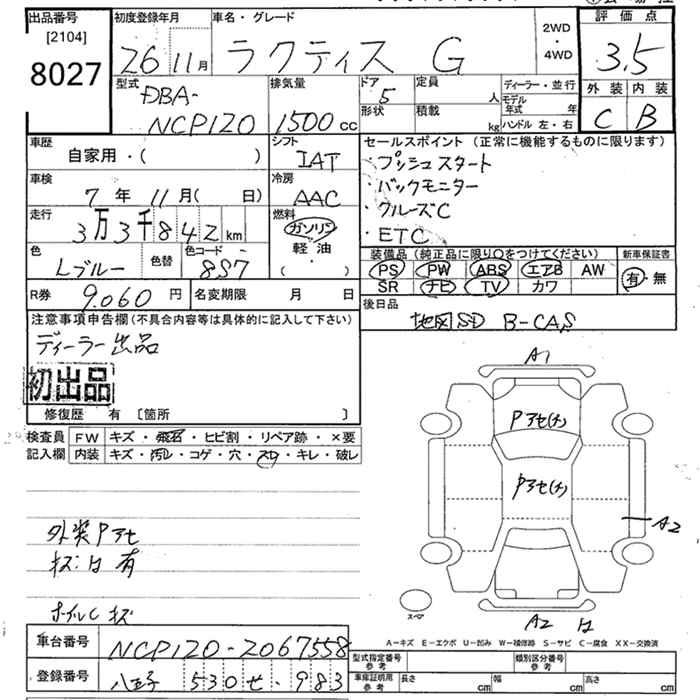 出品番号 [2104] 8027
初度登録年月 26 11月
車名・グレード ラクティス G
2WD ・ 4WD
評価点 3.5
外装 内装
C B
型式 DBA- NCP120
排気量 1500 cc
ドア 5
形状
定員 人
積載 kg
ディーラー・並行
モデル年式 年
ハンドル 左・右
車歴 自家用・( )
シフト IAT
車検 7年 11月( 日)
冷房 AAC
走行 3万3千842km
燃料 ガソリン 軽・油 ( )
色 Lブルー 色替 色コード 8S7
R券 9.060円 名変期限 月 日
セールスポイント(正常に機能するものに限ります)
・プッシュスタート
・バックモニター
・クルーズC
・ETC
装備品(純正品に限り○をつけてください) 新車保証書
PS PW ABS エアB AW 有・無
SR ナビ TV カワ
後日品
地図SD B-CAS
注意事項申告欄(不具合内容等は具体的に記入して下さい)
ディーラー出品
初出品
修復歴 有 [箇所 ]
検査員 FW キズ・飛石・ヒビ割・リペア跡・×要
記入欄 内装 キズ・汚レ・コゲ・穴・スレ・キレ・破レ
外装Pアセ
キズ:は有
ホイルC キズ
A1
Pアセ(チ)
Pアセ(チ)
A2
スペア
A2 は
A-キズ E-エクボ U-凹み W-補修跡 S-サビ C-腐食 XX-交換済
車台番号 NCP120-2067558
登録番号 八王子 530 せ・983
型式指定番号 参考 類別区分番号 参考
車庫証明用 参考 長さ cm 幅 cm 高さ cm